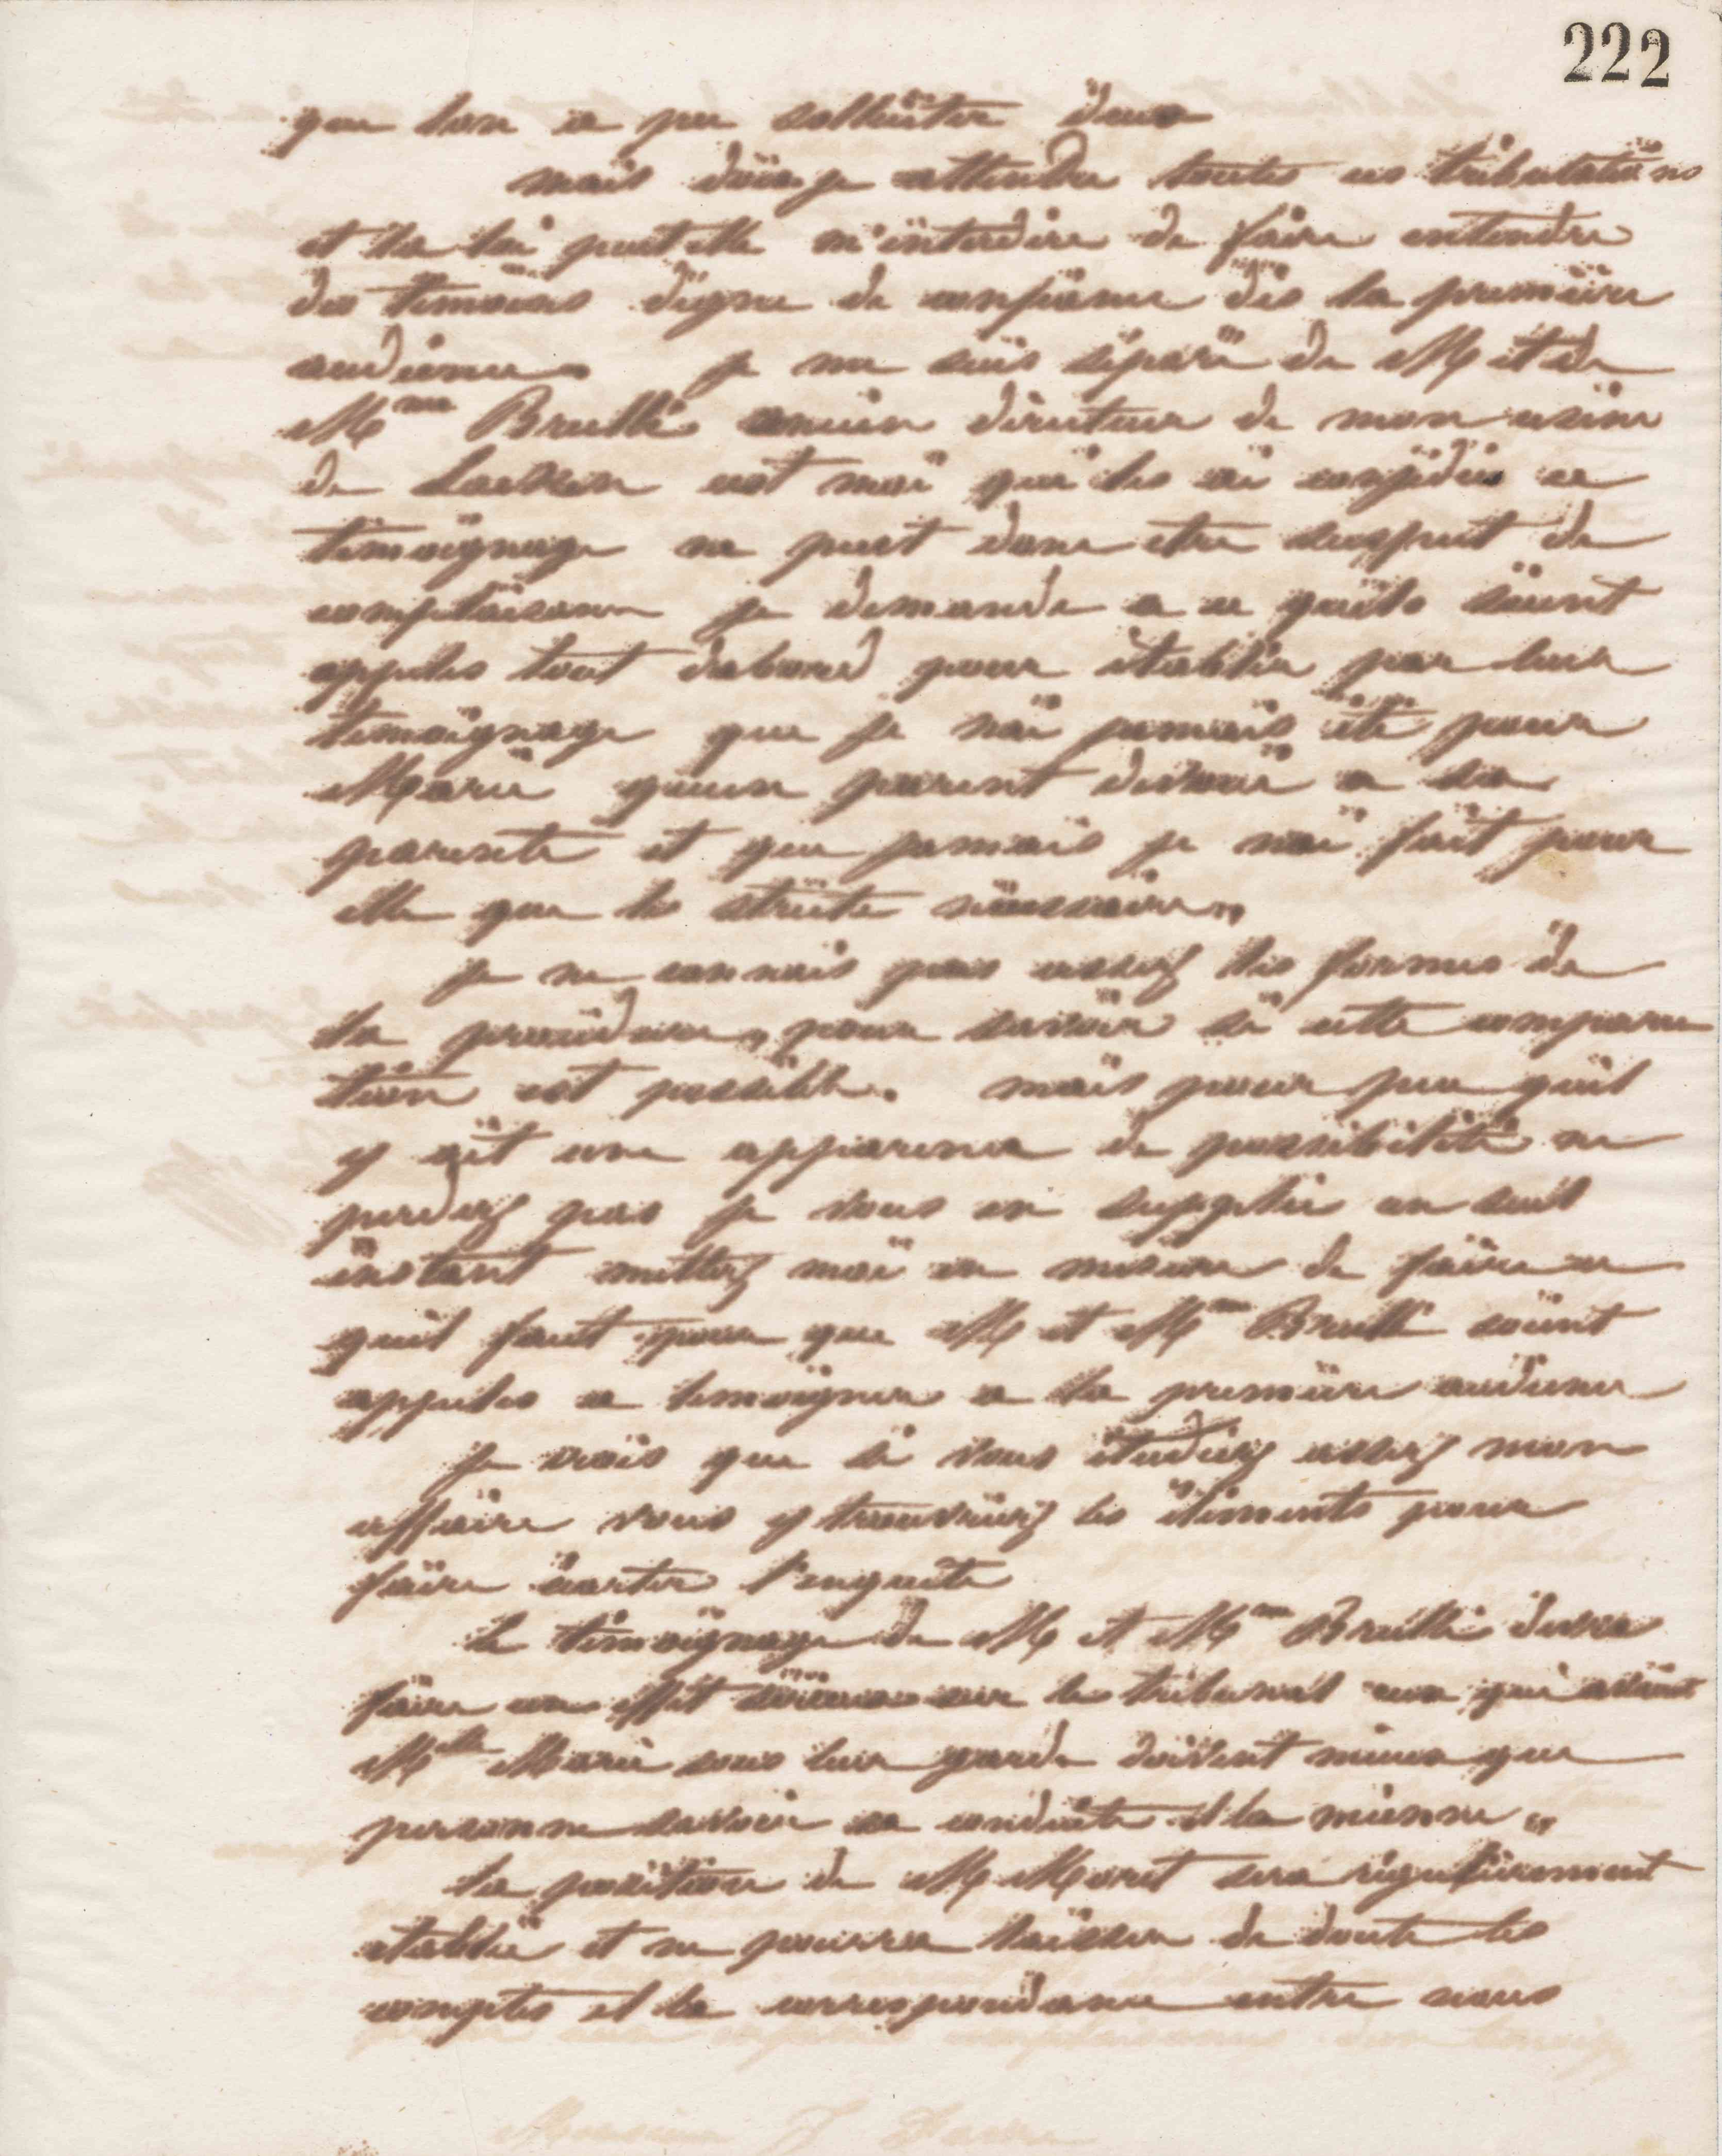 222
que lon a pu solliciter deux
mais doisje attendre toutes ces tribulations
et la loi peut elle m'interdire de faire entendre
des témoins digne de confiance dès la première
audience je me suis séparé de M et de
Mme Brullé ancien directeur de mon usine
de Laeken cest moi qui les ai congédiés ce
témoignage ne peut donc etre suspect de
complaisance je demande a ce quils soient
appelés tout dabord pour établir par leur
témoignage que je nai jamais été pour
Marie quun parent dévoué a sa
parente et que jamais je nai fait pour
elle que le stricte nécessaire,,
je ne connais pas assez les formes de
la procédure, pour savoir si cette comparu
tion est possible. mais pour peu quil
y ait une apparence de possibilité ne
perdez pas je vous en supplie un seul
instant mettez moi en mesure de faire ce
quil faut pour que M et Mme Brullé soient
appelés a temoigner a la première audience
je crois que si vous étudiez assez mon
affaire vous y trouveriez les éléments pour
faire écarter l'enquête
le témoignage de M et Mme Brullé devra
faire un effet sérieux sur le tribunal eux qui avaient
Melle Marie sous leur garde doivent mieux que
personne savoir sa conduite et la mienne,,
la position de M Moret sera régulièrement
établie et ne pourra laisser de doute les
comptes et la correspondance entre nous